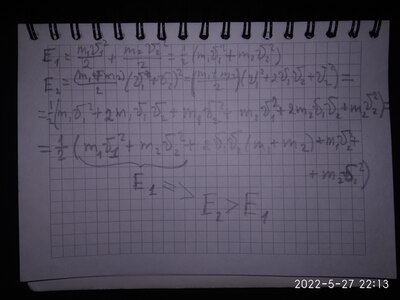 E₁ = m₁v₁²/2 + m₂v₂²/2 = 1/2 (m₁v₁² + m₂v₂²)
E₂ = (m₁+m₂)/2 (v₁+v₂)² = (m₁+m₂)/2 (v₁² + 2v₁v₂ + v₂²) =
= 1/2 (m₁v₁² + 2m₁v₁v₂ + m₁v₂² + m₂v₁² + 2m₂v₁v₂ + m₂v₂²) =
= 1/2 (m₁v₁² + m₂v₂² + 2v₁v₂(m₁+m₂) + m₁v₂² +
+ m₂v₁²)
E₁ =>
E₂ > E₁
2022-5-27 22:13